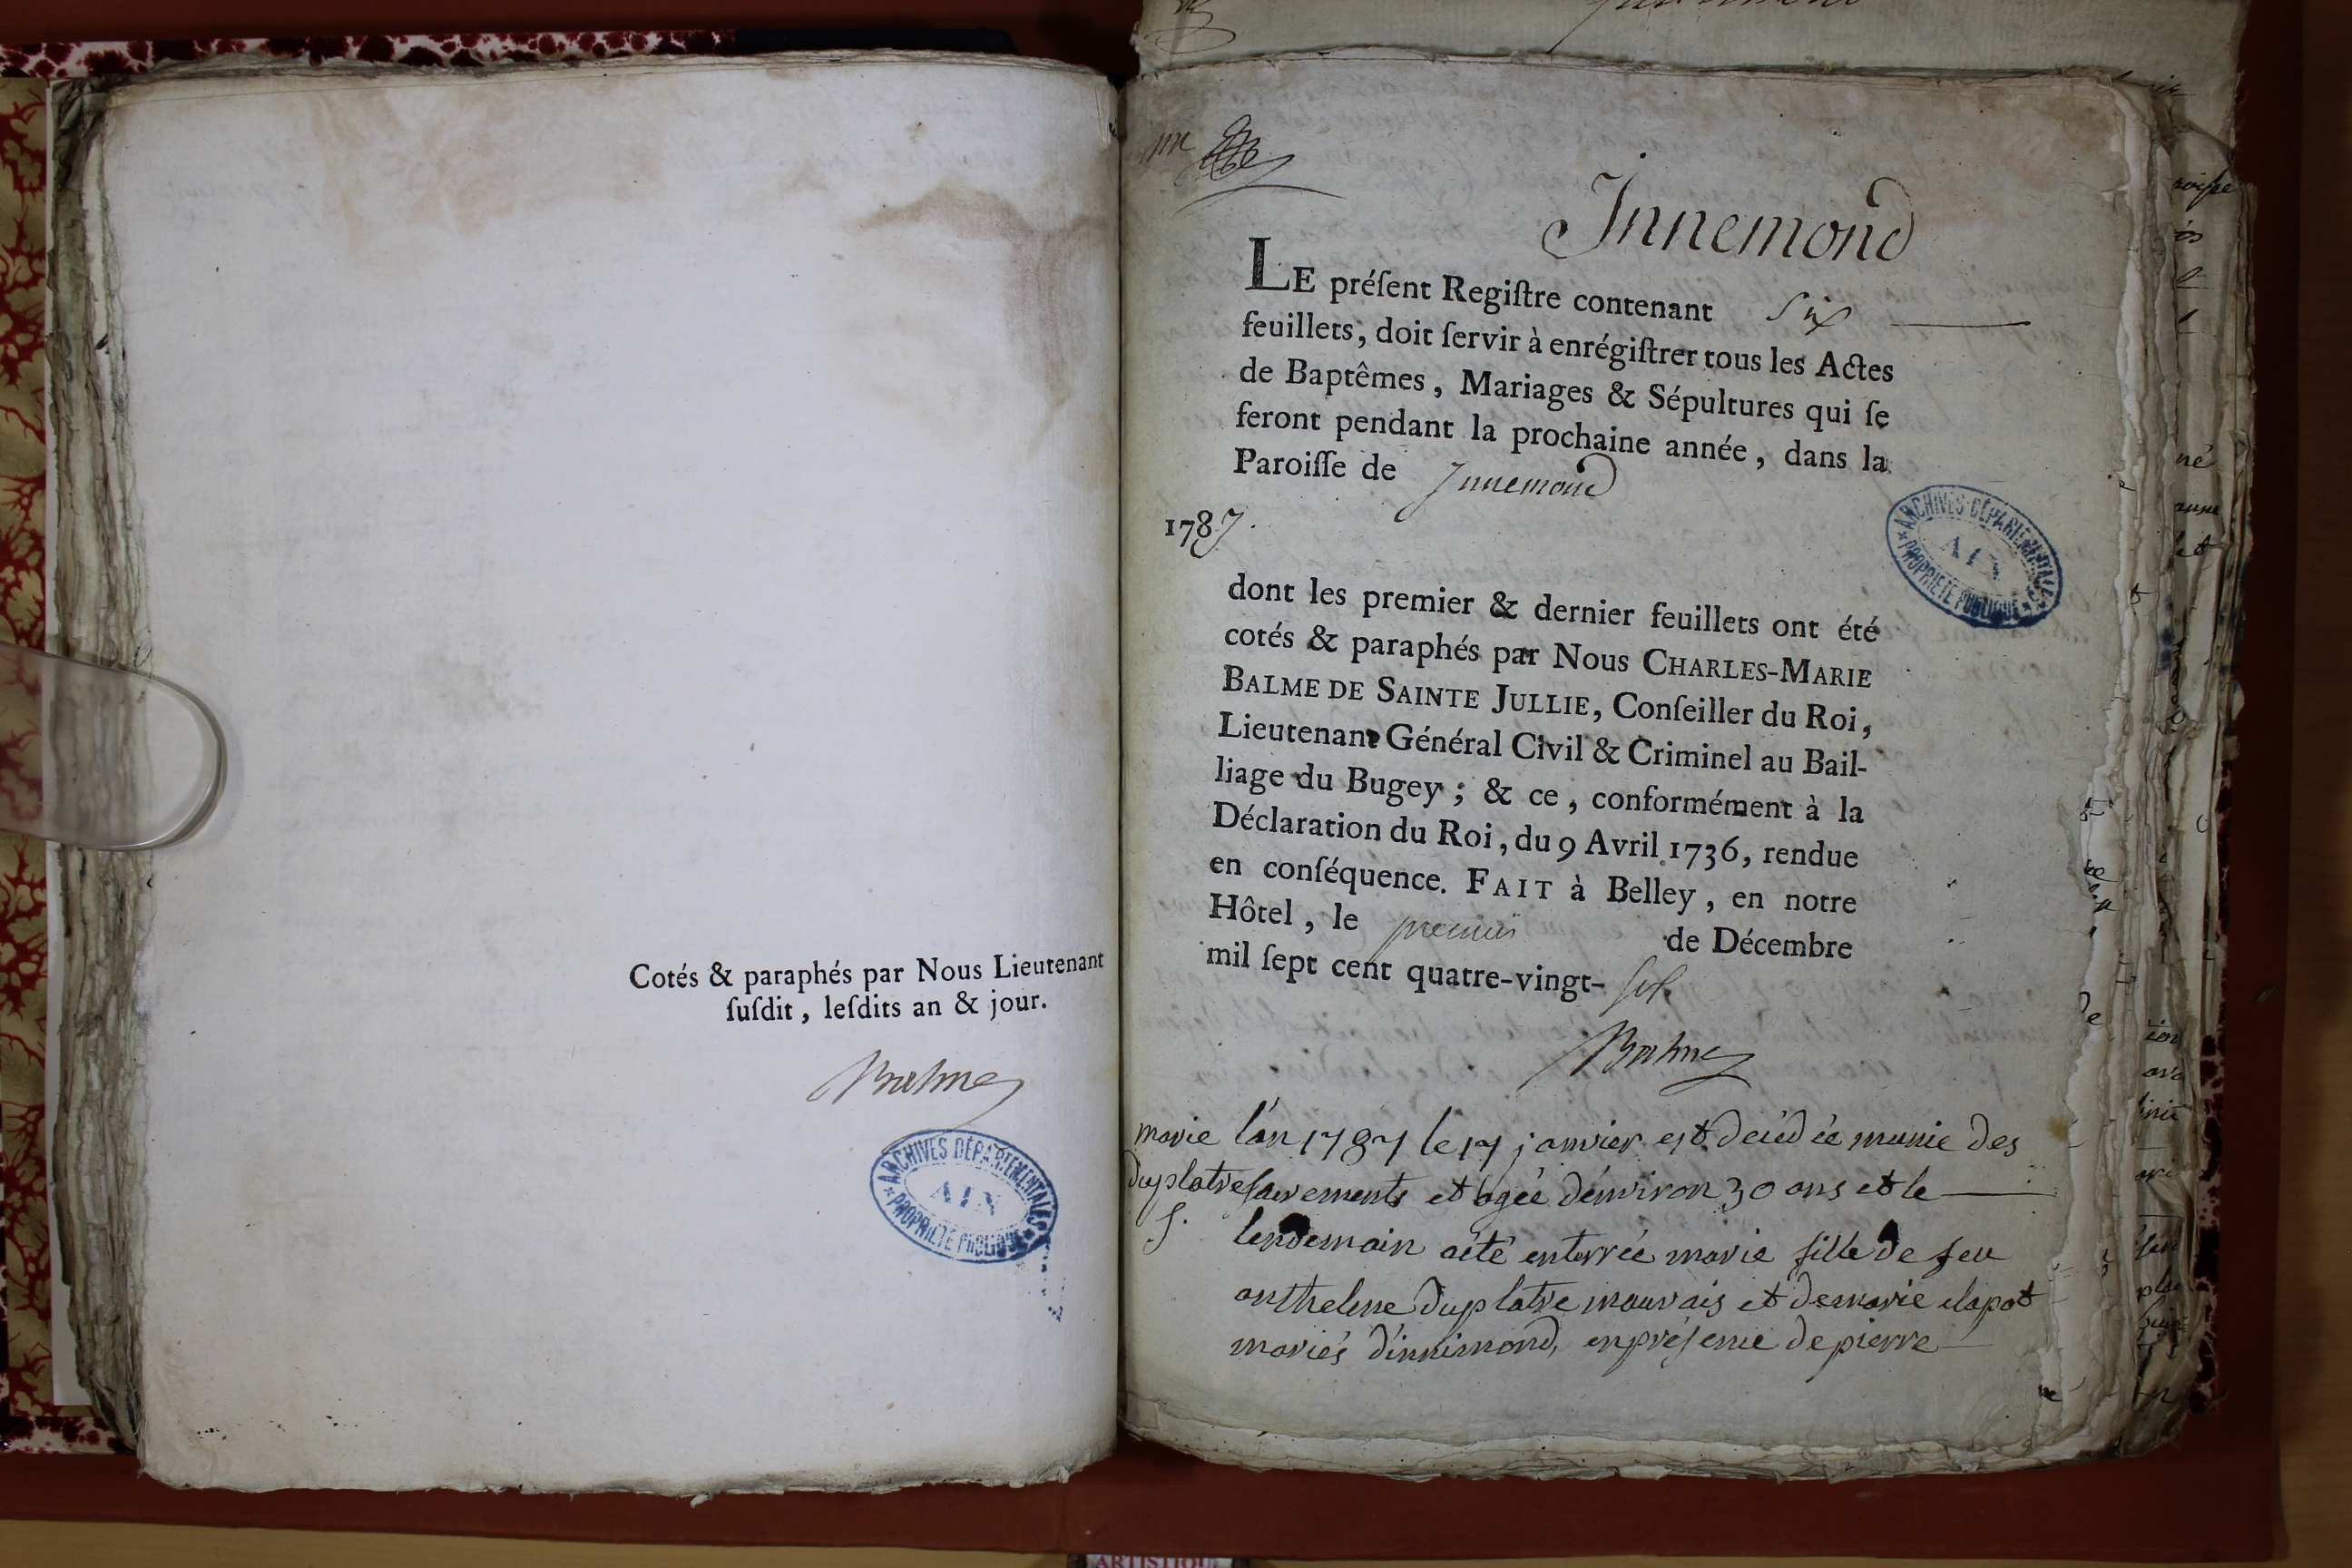 Cotés & paraphés par Nous Lieutenant
ſuſdit, leſdits an & jour.
Balme
ARCHIVES DÉPARTEMENTALES
AIN
PROPRIÉTÉ PUBLIQUE
Innemond
LE préſent Regiſtre contenant six
feuillets, doit ſervir à enrégiſtrer tous les Actes
de Baptêmes, Mariages & Sépultures qui ſe
feront pendant la prochaine année, dans la
Paroiſſe de Innemond
1787.
ARCHIVES DÉPARTEMENTALES
AIN
PROPRIÉTÉ PUBLIQUE
dont les premier & dernier feuillets ont été
cotés & paraphés par Nous CHARLES-MARIE
BALME DE SAINTE JULLIE, Conſeiller du Roi,
Lieutenant Général Civil & Criminel au Bail-
liage du Bugey ; & ce, conformément à la
Déclaration du Roi, du 9 Avril 1736, rendue
en conſéquence. FAIT à Belley, en notre
Hôtel, le premier de Décembre
mil ſept cent quatre-vingt-
Balme
marie
duplatre
S.
l'an 1787 le 17 janvier est décédée munie des
sacrements et agée d'environ 30 ans et le
lendemain a été enterrée marie fille de feu
anthelme duplatre mauvais et de marie clapot
mariés d'innimond, en présence de pierre
ARTISTIQUE